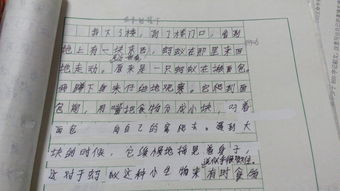 我下了楼，到了楼门口，看到
地上有一块东西，蚂蚁在那里来回
地走动。原来是一只蚂蚁在搬面包。
我蹲下身来仔细地观察。它爬到面
包前，用嘴把食物分成小块，叼着
面包 自己的家爬去。遇到大
块的时候，它缓慢地摇晃着身子，
这对于蚂蚁这种小生物来 有时食物